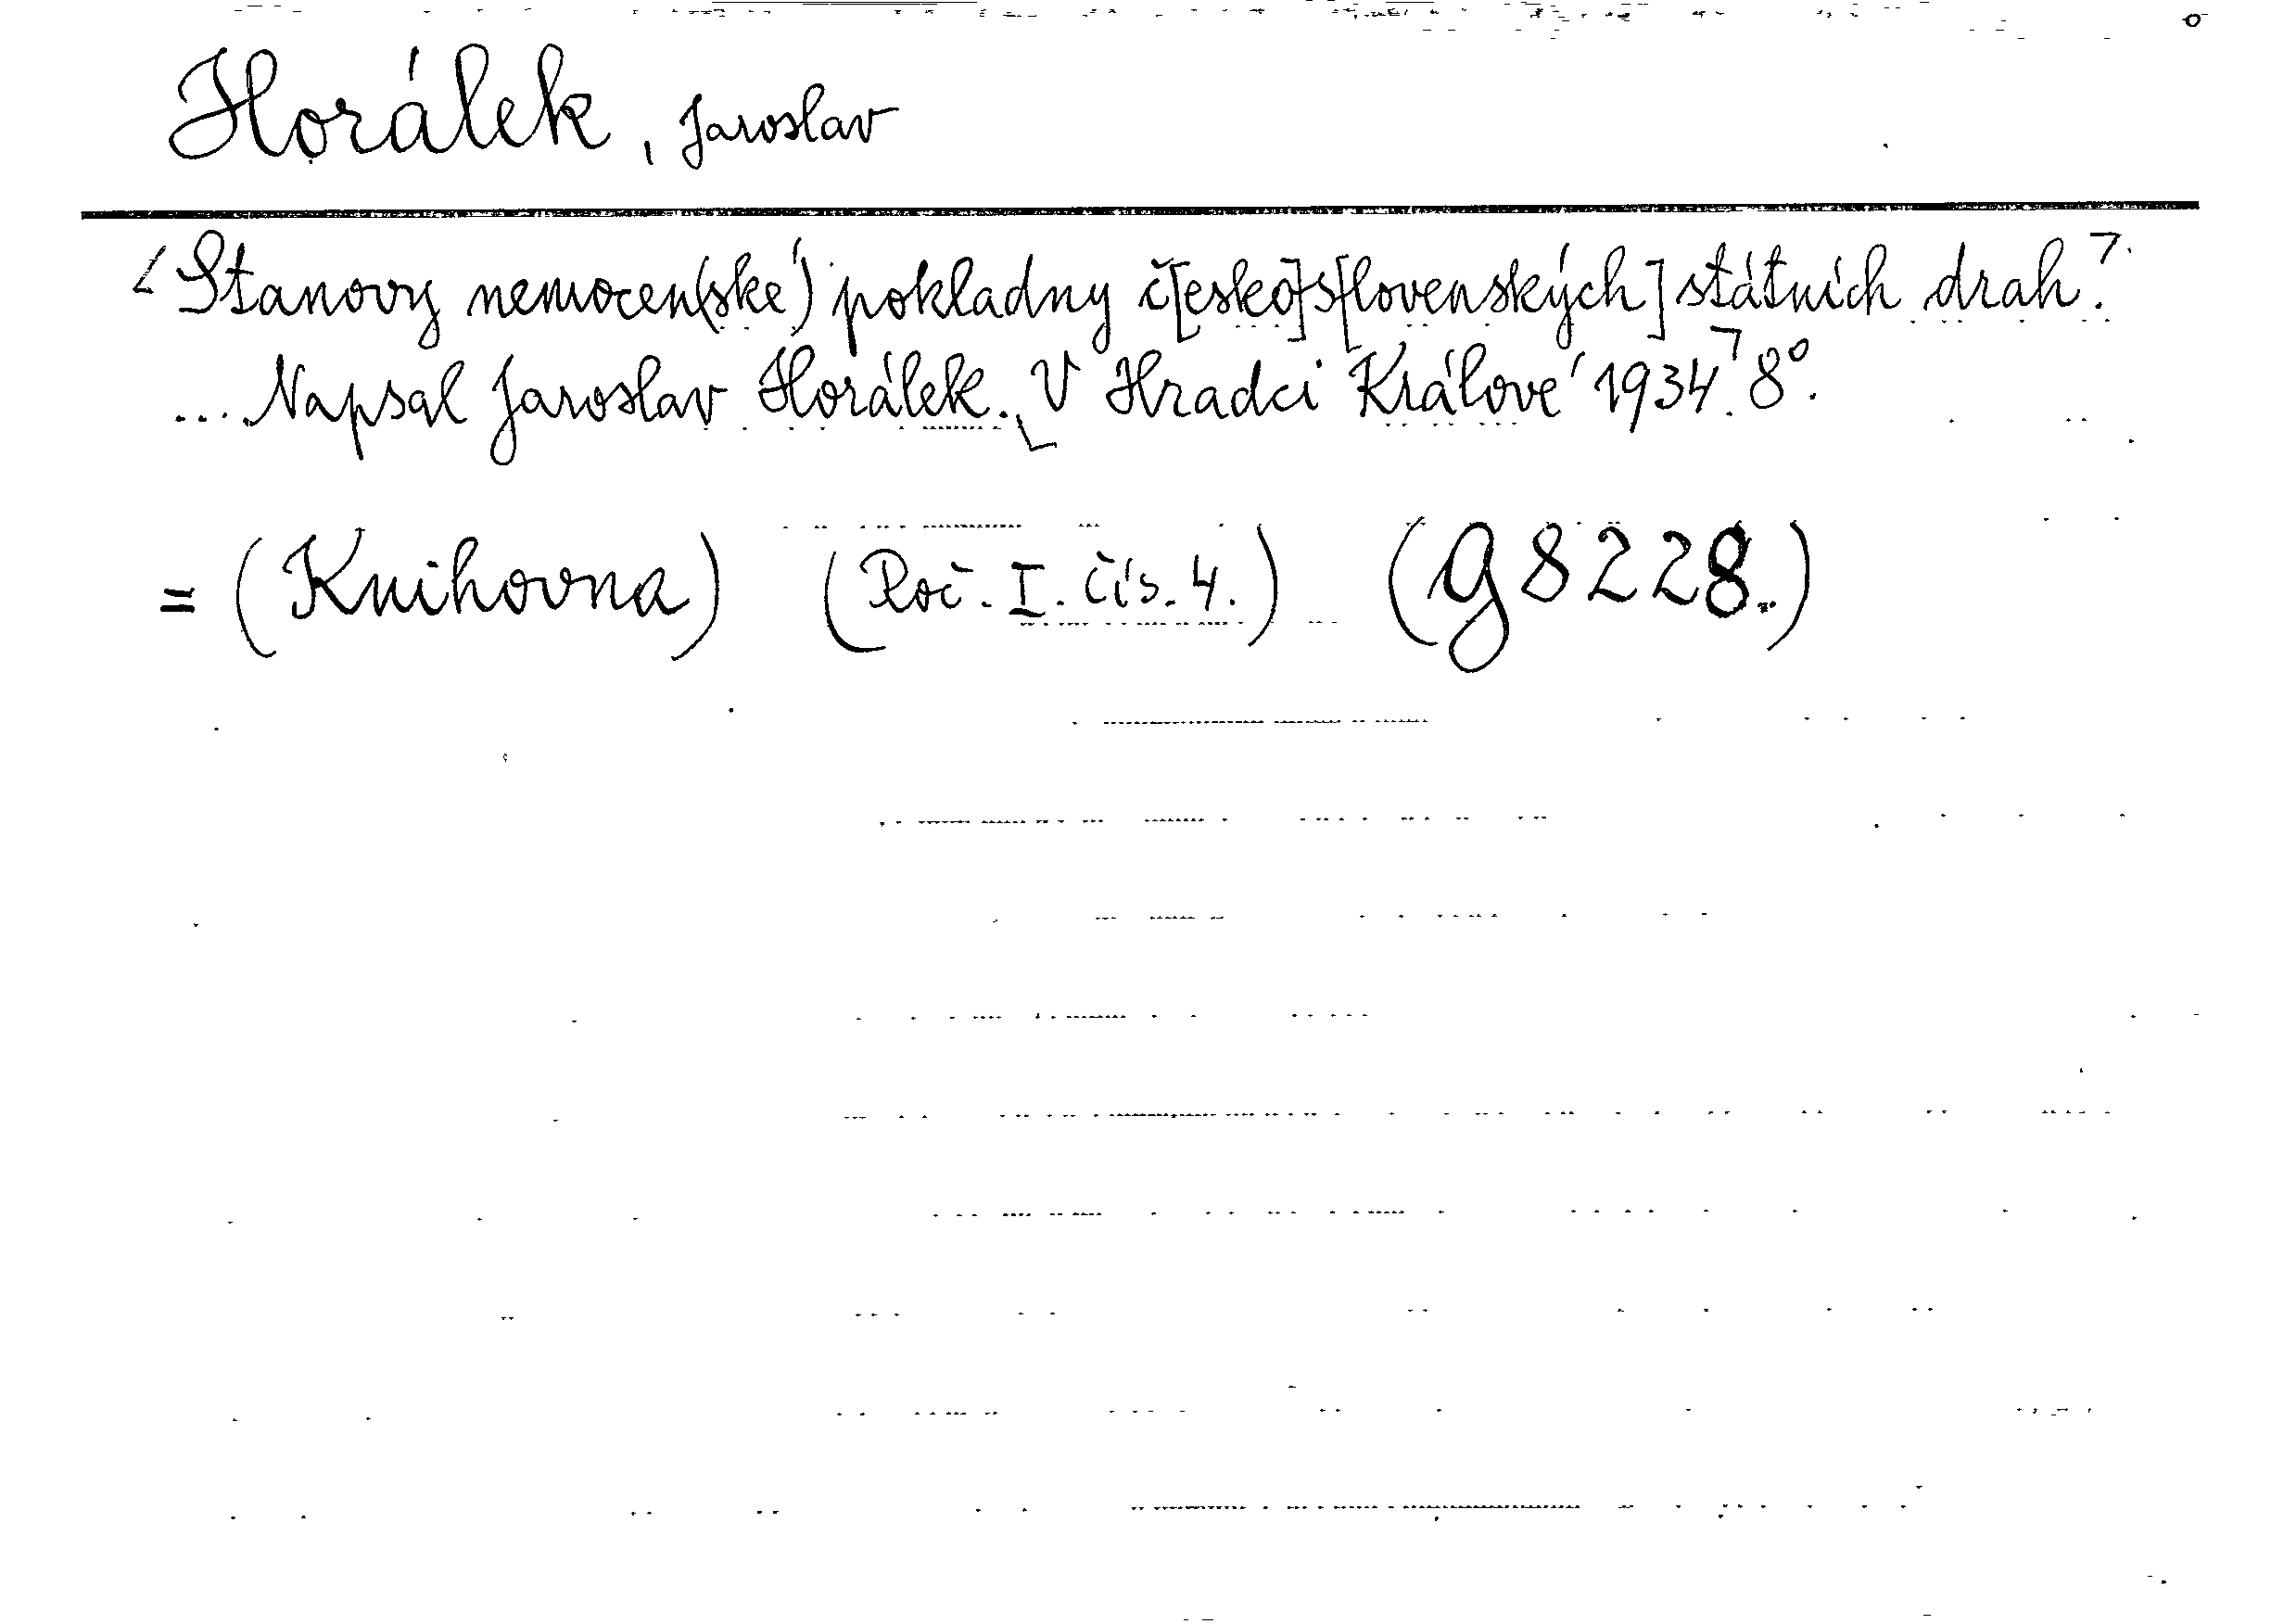 Horálek, Jaroslav
Stanovy nemocen(ské) pokladny č[esko]s[lovenských] státních drah.
... Napsal Jaroslav Horálek. V Hradci Králové 1934. 8°.
= (Knihovna) (Roč. I. čís. 4.) (g 8228.)